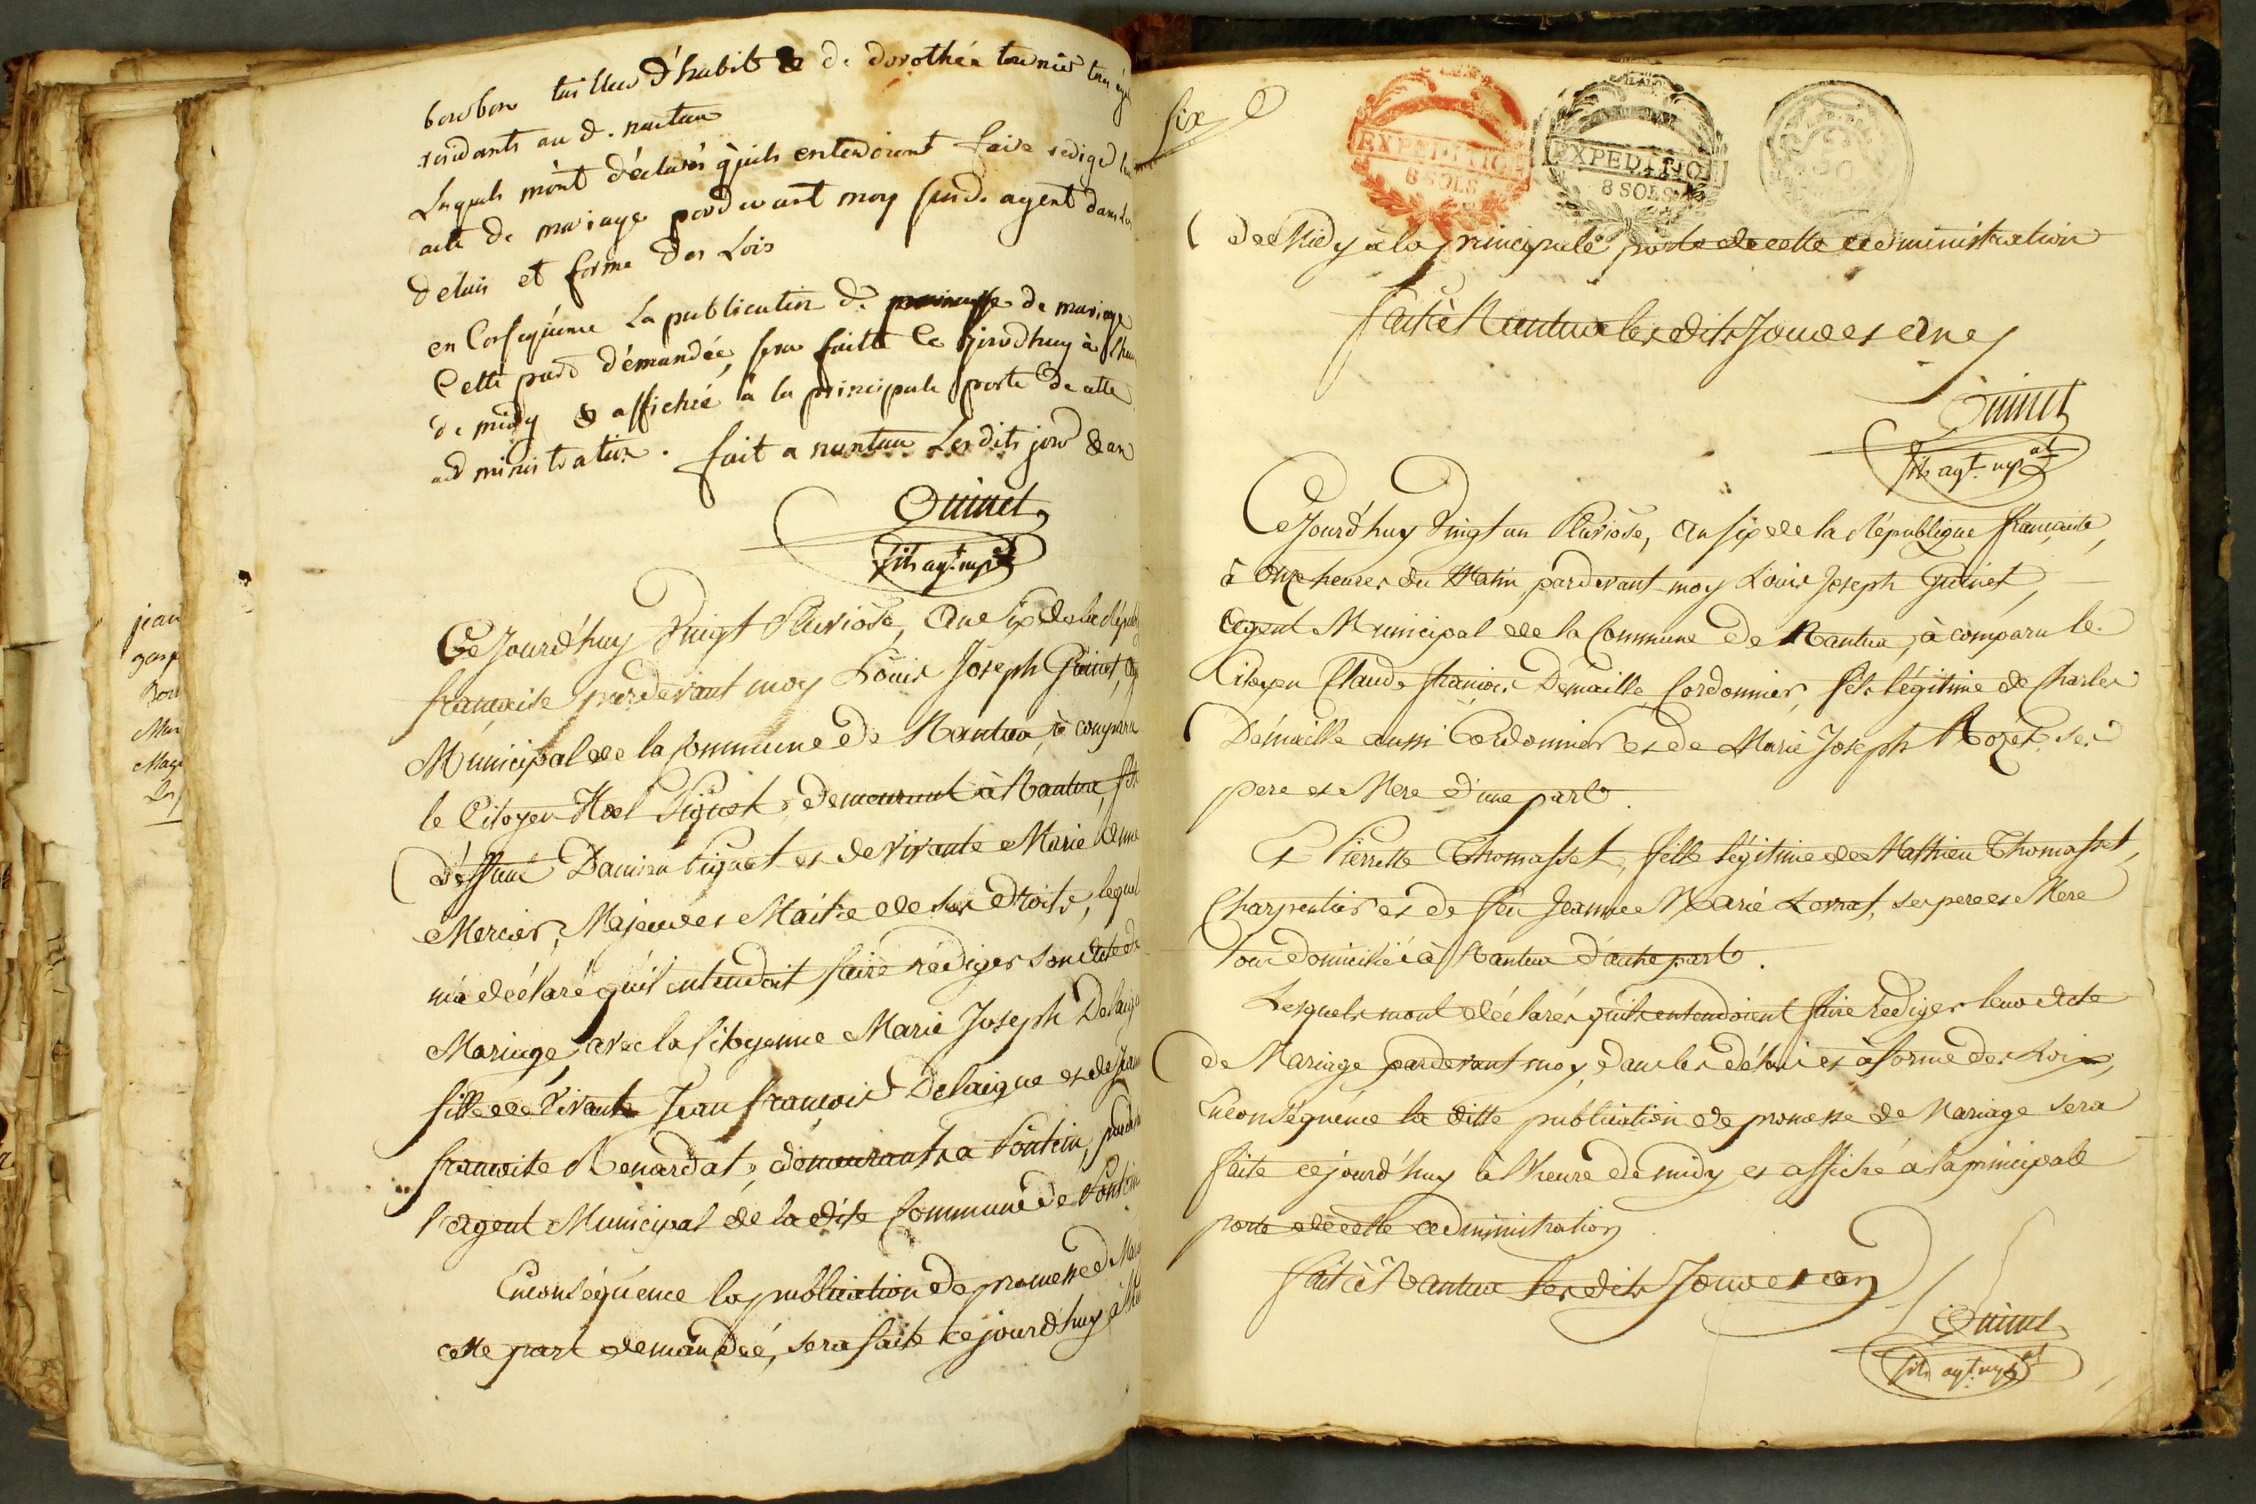 bourbon tailleur d'habit & de dorothée tournier tous
residants au d. nantua
Lesquels m'ont déclarés qu'ils entendoient faire rediger leur
acte de mariage pardevant moy susd. agent dans les
delais et forme des Lois
en Conséquence La publication de de mariage
Cette part démandée, sera faitte Ce jourdhuy à
de midy & affichée à la principale porte de cette
administration. fait a nantua Lesdits jour & an
Guinet
fils agt. mpal
jean
Mar
Ce Jourd'huy Vingt Pluviôse, An Six de la
françoise pardevant moy Louis Joseph Guinet,
Municipal de la Commune de Nantua, à comparu
le Citoyen Noel Piquet, demeurant à Nantua,
Déffunt Damien Piquet et de vivante Marie
Mercier, Majeur et Maitre de ses droits, lequel
m'a déclaré qu'il entendoit faire rédiger son Acte de
Mariage, avec la Citoyenne Marie Joseph Delaigue
fille de Vivants Jean françois Delaigue et de
françoise Renardat, demeurants a Pontcin,
l'agent Municipal de la dite Commune de
Enconséquence la publication de promesse de
cette part demandée, sera faite ce jourd'huy
six
EXPEDITION
8 SOLS
EXPEDITIO
8 SOLS
de Midy à la principale porte de cette administration
fait à Nantua les dits Jour et an
Guinet
fils agt. mpal
Ce Jourd'huy Vingt un Pluviose, an six de la République française,
à onze heures du Matin, pardevant moy Louis Joseph Guinet,
agent Municipal de la Commune de Nantua, à comparu le
Citoyen Claude françois Démaille Cordonnier, fils légitime de Charles
Démaille aussi Cordonnier et de Marie Joseph Rozet ses
pere et Mere d'une part.
Et Pierrette Thomasset, fille légitime de Mathieu Thomasset,
Charpentier et de feu Jeanne Marie, ses pere et Mere
tous domiciliés à Nantua d'autre part.
Lesquels mont déclarés quils entendoient faire rediger leur Acte
de Mariage pardevant moy, dans les délais et à forme des Loix,
Enconséquence la ditte publication de promesse de Mariage sera
faite cejourd'huy à l'heure de midy et affiché à la principale
porte de cette administration
fait à Nantua les dits Jour et an
Guinet
fils agt. mpal